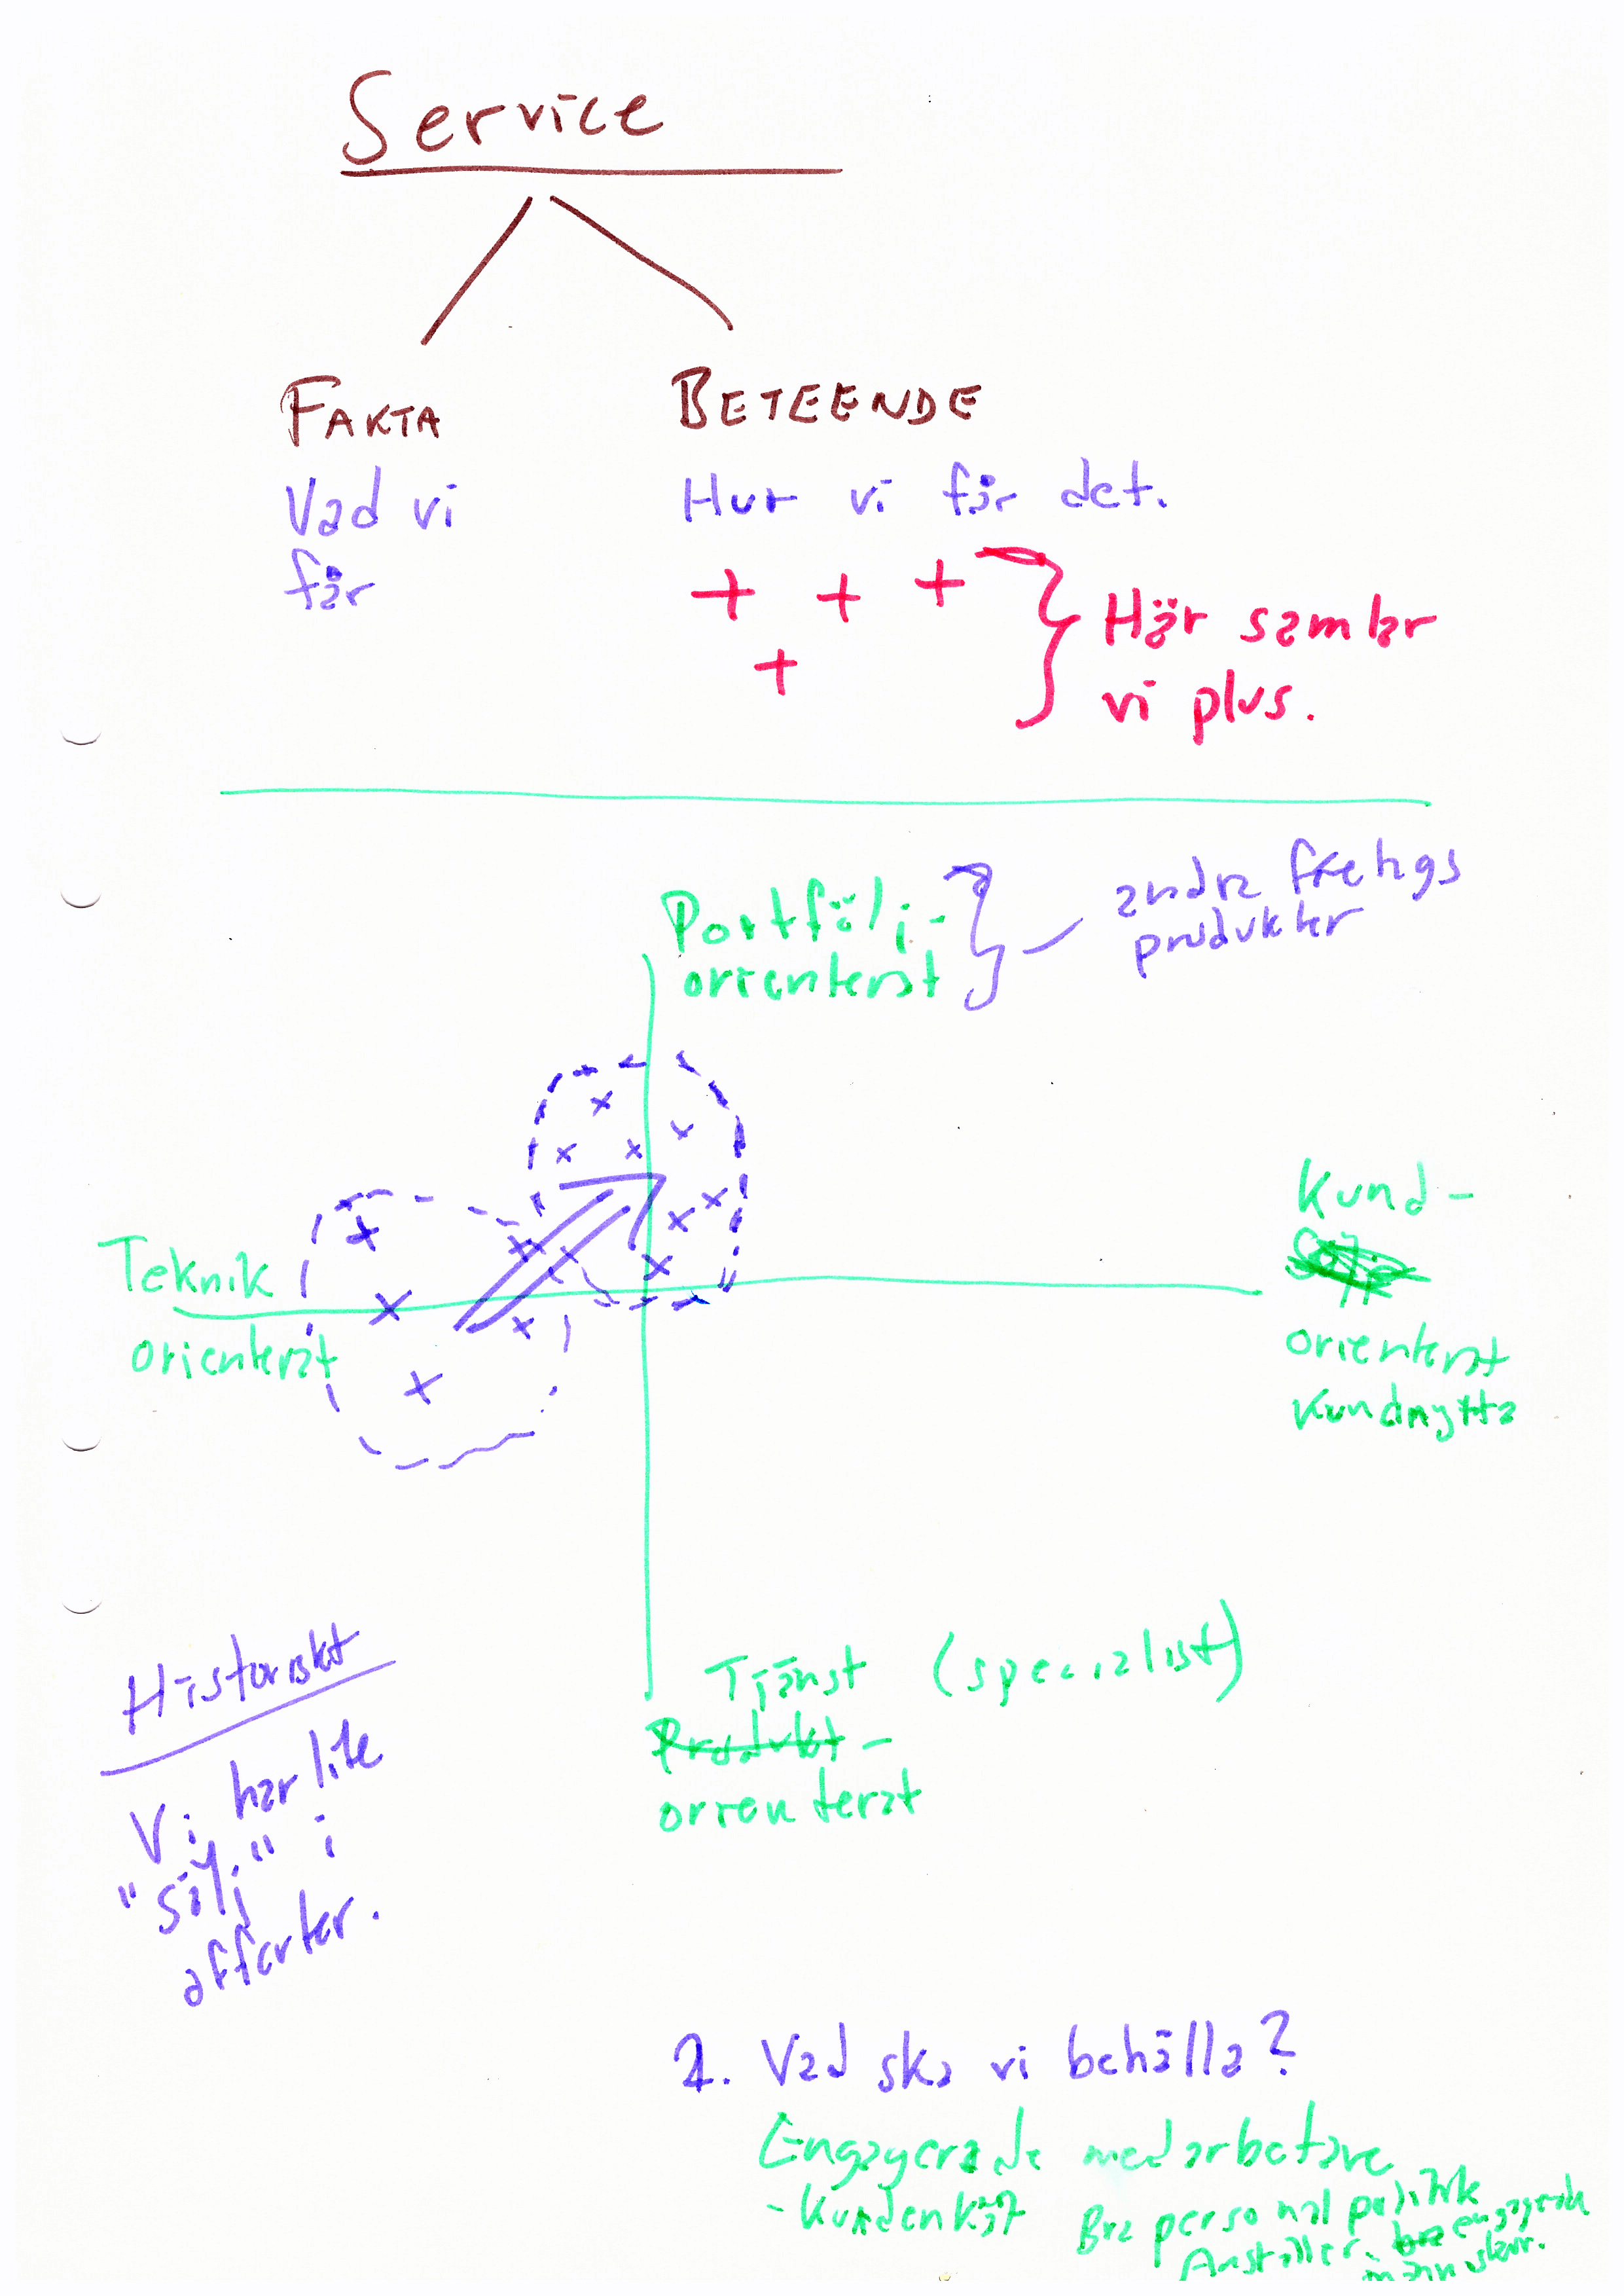 Service
FAKTA
Vad vi
får
BETEENDE
Hur vi får det.
+ + +
+
Här samlar
vi plus.
Portfölj-
orienterat
andra
produkter
Teknik
orienterat
Kund-
orienterat
Kundnytta
Tjänst (specialist)
Produkt-
orienterat
Historiskt
Vi har lite
"sälj" i
offerter.
1. Vad ska vi behålla?
Engagerade medarbetare
- Kundenkät
Bra personalpolitik
Anställer bra engagerade
människor.